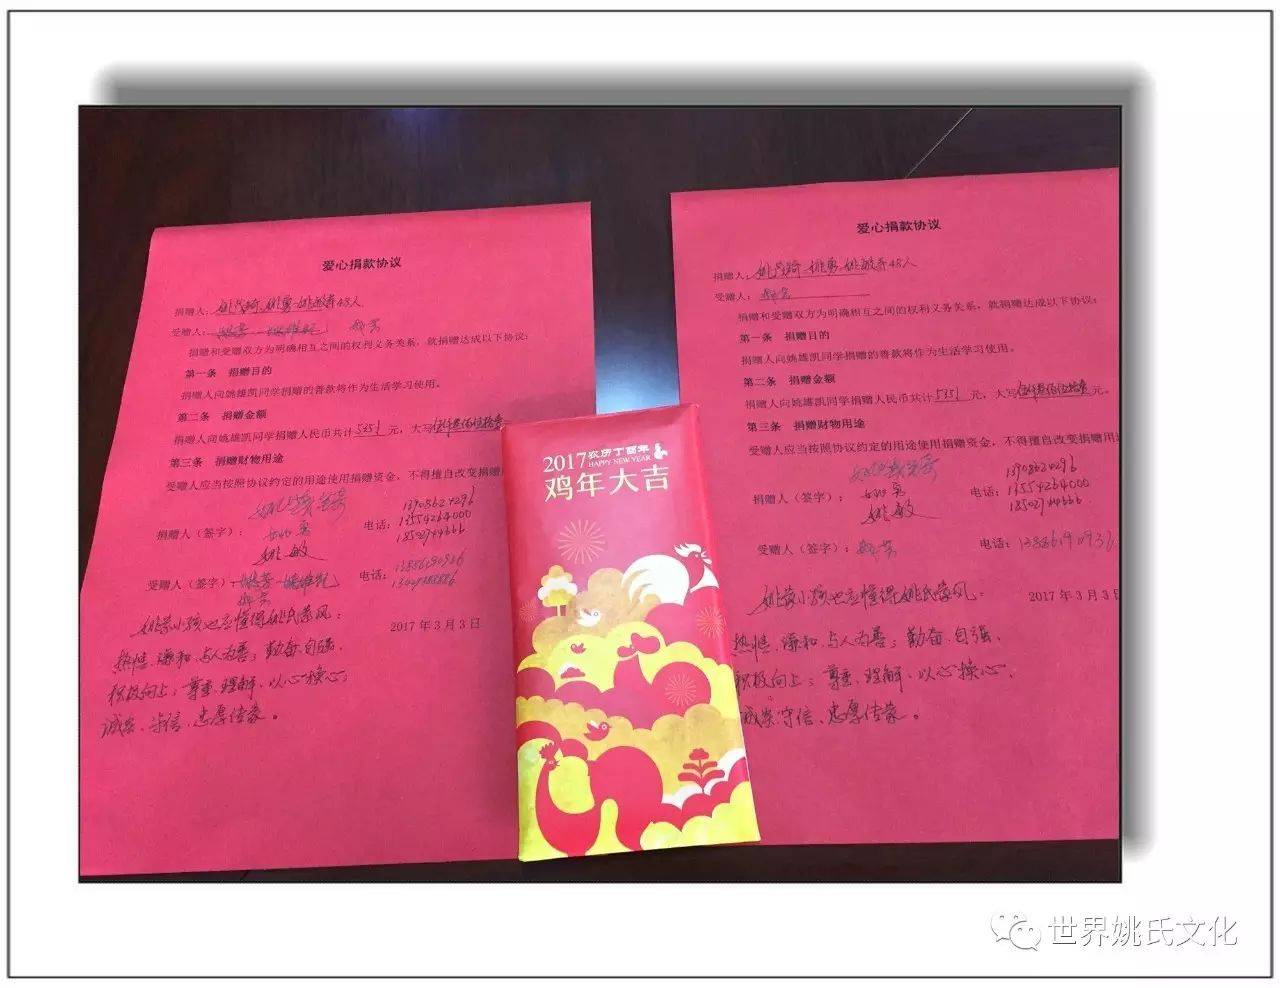 爱心捐款协议
捐赠人：姚茂琦、姚勇、姚敏等48人
受赠人： 姚芳
捐赠和受赠双方为明确相互之间的权利义务关系，就捐赠达成以下协议：
第一条 捐赠目的
捐赠人向姚雄凯同学捐赠的善款将作为生活学习使用。
第二条 捐赠金额
捐赠人向姚雄凯同学捐赠人民币共计 5351 元，大写伍仟叁佰伍拾壹
第三条 捐赠财物用途
受赠人应当按照协议约定的用途使用捐赠资金，不得擅自改变捐赠用
捐赠人（签字）：
姚勇
姚敏
电话：
13554264000
受赠人（签字）
姚芳
电话：
姚家小孩也应懂得姚氏家风：
2017 年 3 月 3 日
热情、谦和、与人为善；勤奋、自强、
积极向上；尊重、理解、以心换心；
诚实、守信、忠厚传家。
2017 农历丁酉年
HAPPY NEW YEAR
鸡年大吉
爱心捐款协议
捐赠人：姚茂琦、姚勇、姚敏等48人
受赠人：姚芳
捐赠和受赠双方为明确相互之间的权利义务关系，就捐赠达成以下协议：
第一条 捐赠目的
捐赠人向姚雄凯同学捐赠的善款将作为生活学习使用。
第二条 捐赠金额
捐赠人向姚雄凯同学捐赠人民币共计 5351 元，大写伍仟叁佰伍拾壹元。
第三条 捐赠财物用途
受赠人应当按照协议约定的用途使用捐赠资金，不得擅自改变捐赠用
捐赠人（签字）：
姚勇
姚敏
电话：
13554264000
受赠人（签字）：姚芳
电话：
姚家小孩也应懂得姚氏家风：
2017 年 3 月 3 日
热情、谦和、与人为善；勤奋、自强、
积极向上；尊重、理解、以心换心、
诚实、守信、忠厚传家。
世界姚氏文化